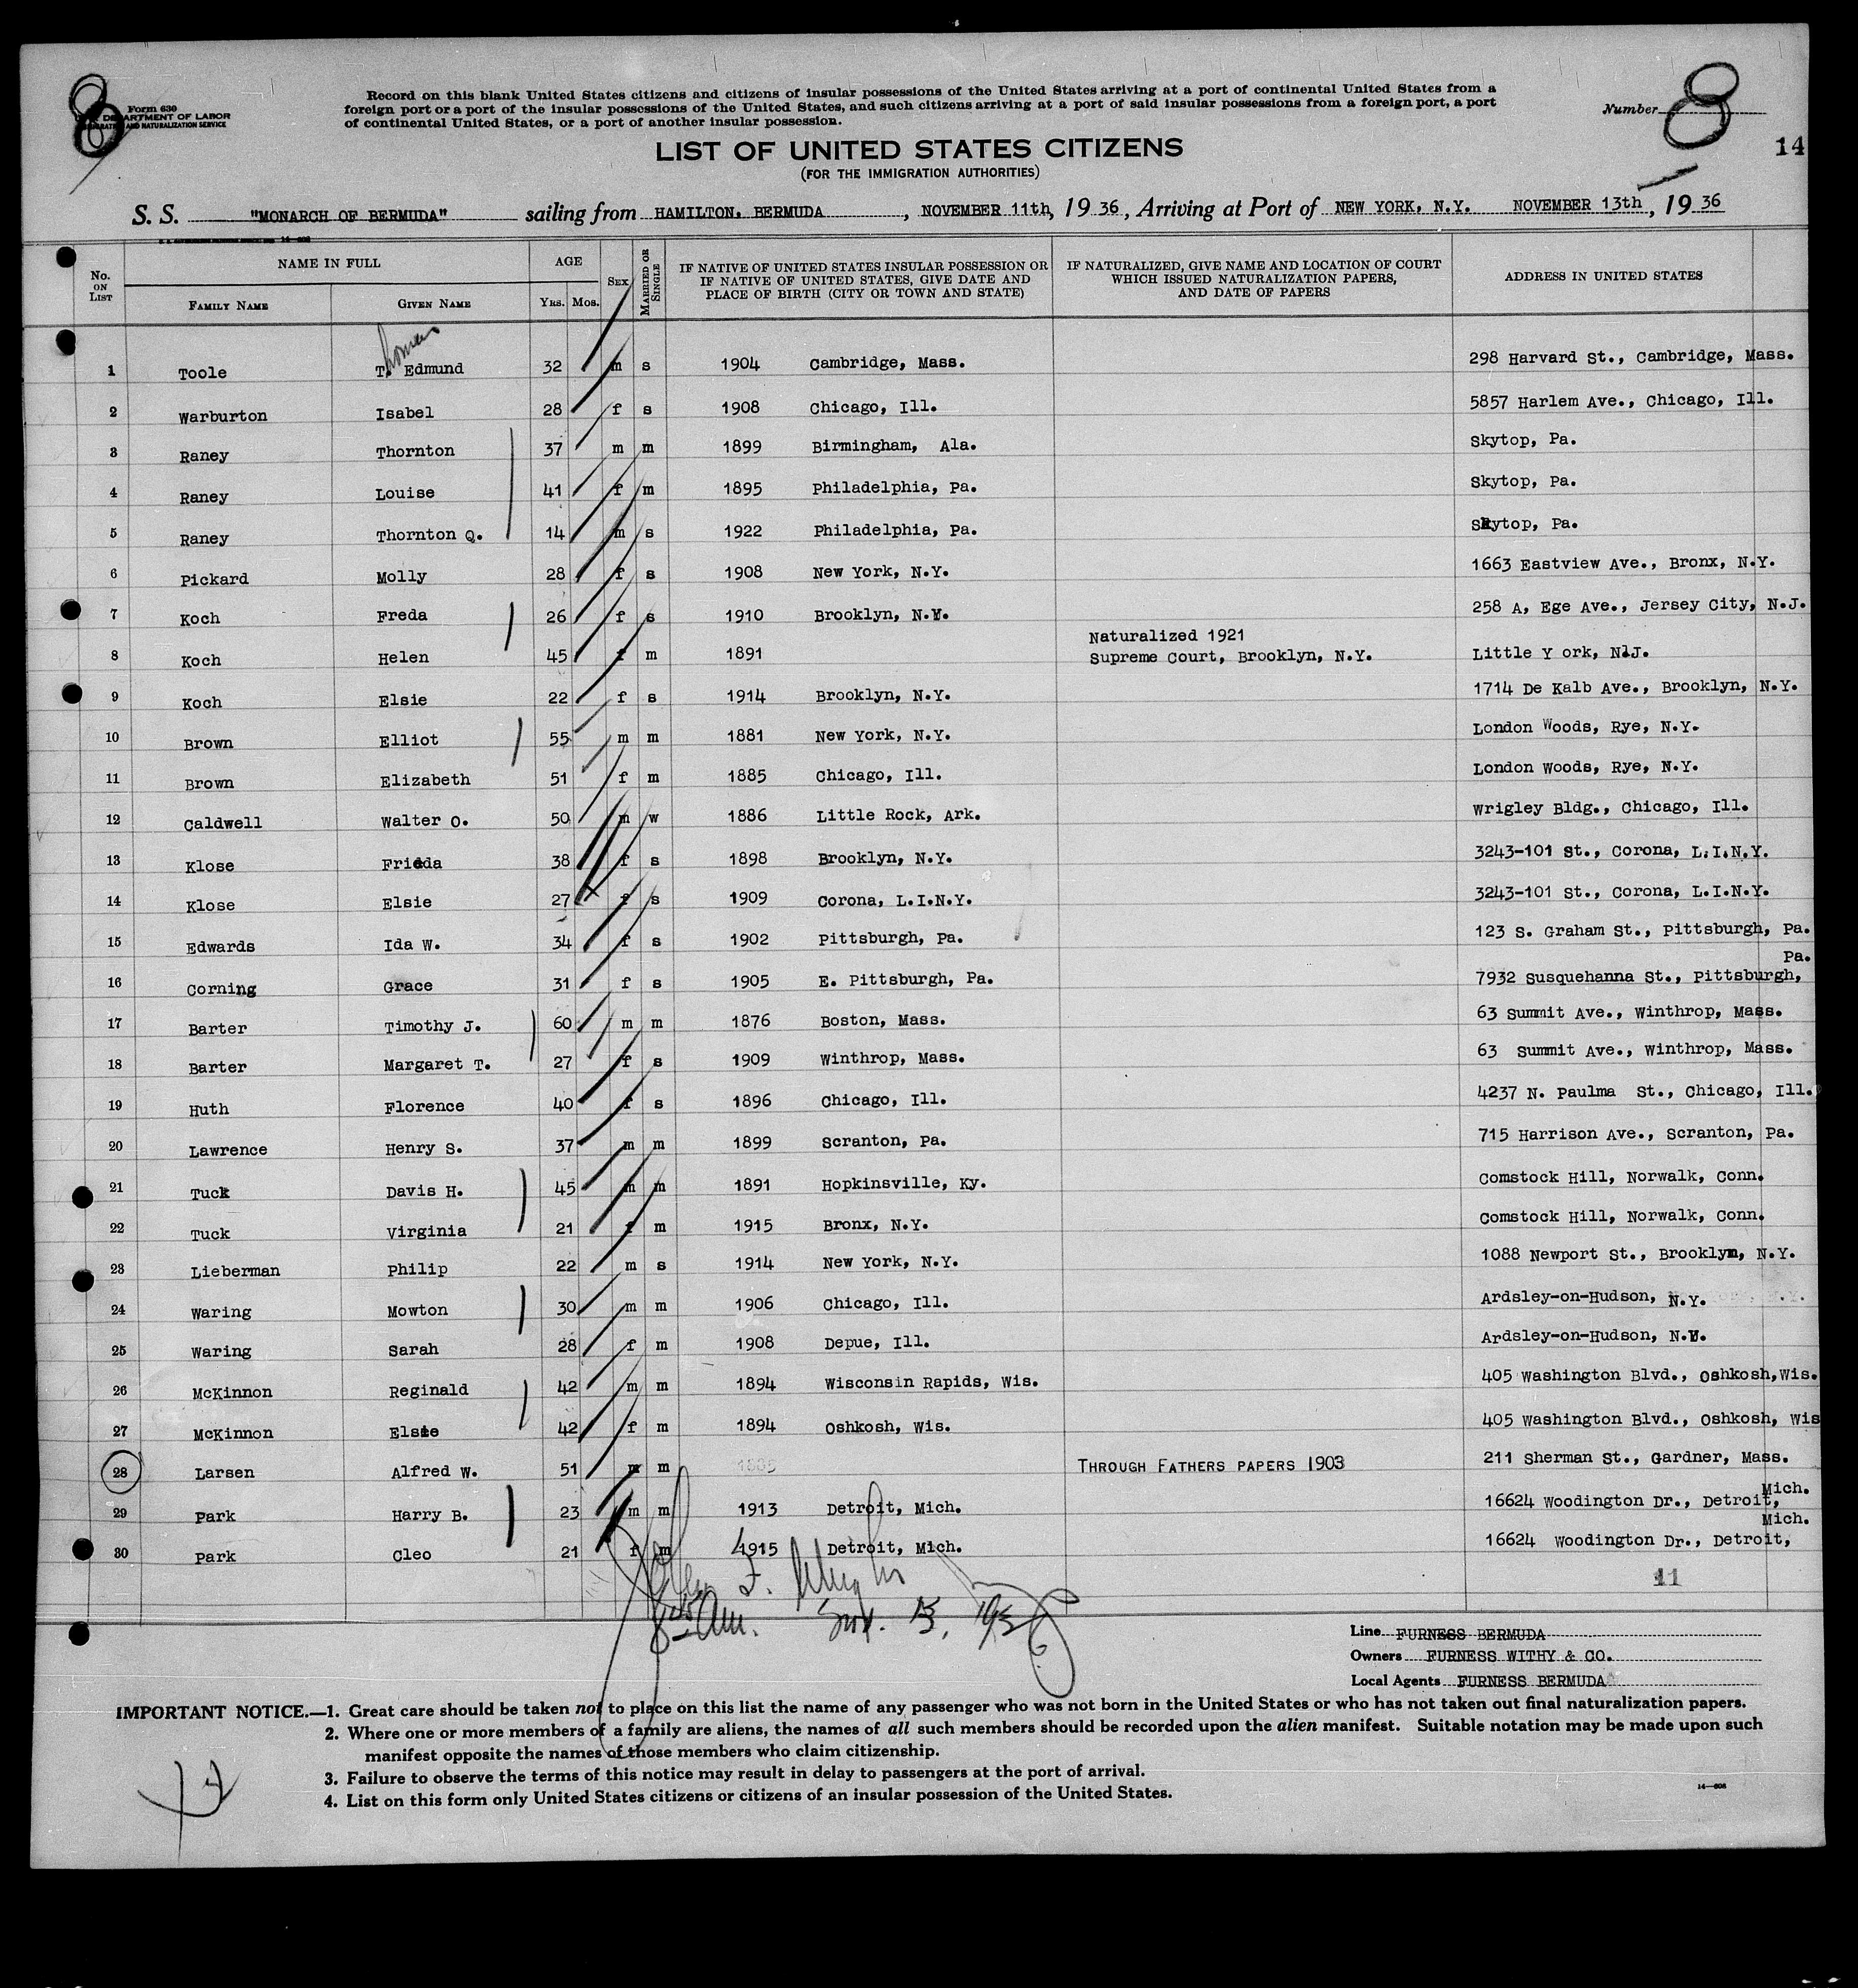 8
8
Form 630
DEPARTMENT OF LABOR
IMMIGRATION AND NATURALIZATION SERVICE
Record on this blank United States citizens and citizens of insular possessions of the United States arriving at a port of continental United States from a
foreign port or a port of the insular possessions of the United States, and such citizens arriving at a port of said insular possessions from a foreign port, a port
of continental United States, or a port of another insular possession.
Number
14
LIST OF UNITED STATES CITIZENS
(FOR THE IMMIGRATION AUTHORITIES)
S. S. "MONARCH OF BERMUDA" sailing from HAMILTON, BERMUDA, NOVEMBER 11th, 19 36, Arriving at Port of NEW YORK, N.Y. NOVEMBER 13th, 19 36
No. ON LIST NAME IN FULL FAMILY NAME GIVEN NAME AGE YRS. MOS. SEX MARRIED OR SINGLE IF NATIVE OF UNITED STATES INSULAR POSSESSION OR IF NATIVE OF UNITED STATES, GIVE DATE AND PLACE OF BIRTH (CITY OR TOWN AND STATE) IF NATURALIZED, GIVE NAME AND LOCATION OF COURT WHICH ISSUED NATURALIZATION PAPERS, AND DATE OF PAPERS ADDRESS IN UNITED STATES
Thomas
1 Toole T. Edmund 32 m s 1904 Cambridge, Mass. 298 Harvard St., Cambridge, Mass.
2 Warburton Isabel 28 f s 1908 Chicago, Ill. 5857 Harlem Ave., Chicago, Ill.
3 Raney Thornton 37 m m 1899 Birmingham, Ala. Skytop, Pa.
4 Raney Louise 41 f m 1895 Philadelphia, Pa. Skytop, Pa.
5 Raney Thornton Q. 14 m s 1922 Philadelphia, Pa. Skytop, Pa.
6 Pickard Molly 28 f s 1908 New York, N.Y. 1663 Eastview Ave., Bronx, N.Y.
7 Koch Freda 26 f s 1910 Brooklyn, N.Y. 258 A, Ege Ave., Jersey City, N.J.
Naturalized 1921
8 Koch Helen 45 f m 1891 Supreme Court, Brooklyn, N.Y. Little Y ork, N.J.
9 Koch Elsie 22 f s 1914 Brooklyn, N.Y. 1714 De Kalb Ave., Brooklyn, N.Y.
10 Brown Elliot 55 m m 1881 New York, N.Y. London Woods, Rye, N.Y.
11 Brown Elizabeth 51 f m 1885 Chicago, Ill. London Woods, Rye, N.Y.
12 Caldwell Walter O. 50 m w 1886 Little Rock, Ark. Wrigley Bldg., Chicago, Ill.
13 Klose Frieda 38 f s 1898 Brooklyn, N.Y. 3243-101 St., Corona, L.I.N.Y.
14 Klose Elsie 27 f s 1909 Corona, L.I.N.Y. 3243-101 St., Corona, L.I.N.Y.
15 Edwards Ida W. 34 f s 1902 Pittsburgh, Pa. 123 S. Graham St., Pittsburgh, Pa.
Pa.
16 Corning Grace 31 f s 1905 E. Pittsburgh, Pa. 7932 Susquehanna St., Pittsburgh,
17 Barter Timothy J. 60 m m 1876 Boston, Mass. 63 Summit Ave., Winthrop, Mass.
18 Barter Margaret T. 27 f s 1909 Winthrop, Mass. 63 Summit Ave., Winthrop, Mass.
19 Huth Florence 40 f s 1896 Chicago, Ill. 4237 N. Paulma St., Chicago, Ill.
20 Lawrence Henry S. 37 m m 1899 Scranton, Pa. 715 Harrison Ave., Scranton, Pa.
21 Tuck Davis H. 45 m m 1891 Hopkinsville, Ky. Comstock Hill, Norwalk, Conn.
22 Tuck Virginia 21 f m 1915 Bronx, N.Y. Comstock Hill, Norwalk, Conn.
23 Lieberman Philip 22 m s 1914 New York, N.Y. 1088 Newport St., Brooklyn, N.Y.
24 Waring Mowton 30 m m 1906 Chicago, Ill. Ardsley-on-Hudson, N.Y.
25 Waring Sarah 28 f m 1908 Depue, Ill. Ardsley-on-Hudson, N.Y.
26 McKinnon Reginald 42 m m 1894 Wisconsin Rapids, Wis. 405 Washington Blvd., Oshkosh, Wis.
27 McKinnon Elsie 42 f m 1894 Oshkosh, Wis. 405 Washington Blvd., Oshkosh, Wis
28 Larsen Alfred W. 51 m m 1885 THROUGH FATHERS PAPERS 1903 211 Sherman St., Gardner, Mass.
Mich.
29 Park Harry B. 23 m m 1913 Detroit, Mich. 16624 Woodington Dr., Detroit,
Mich.
30 Park Cleo 21 f m 1915 Detroit, Mich. 16624 Woodington Dr., Detroit,
11
Nov. 13, 1936
Line FURNESS BERMUDA
Owners FURNESS WITHY & CO.
Local Agents FURNESS BERMUDA
IMPORTANT NOTICE.—1. Great care should be taken not to place on this list the name of any passenger who was not born in the United States or who has not taken out final naturalization papers.
2. Where one or more members of a family are aliens, the names of all such members should be recorded upon the alien manifest. Suitable notation may be made upon such
manifest opposite the names of those members who claim citizenship.
3. Failure to observe the terms of this notice may result in delay to passengers at the port of arrival.
4. List on this form only United States citizens or citizens of an insular possession of the United States.
14—608